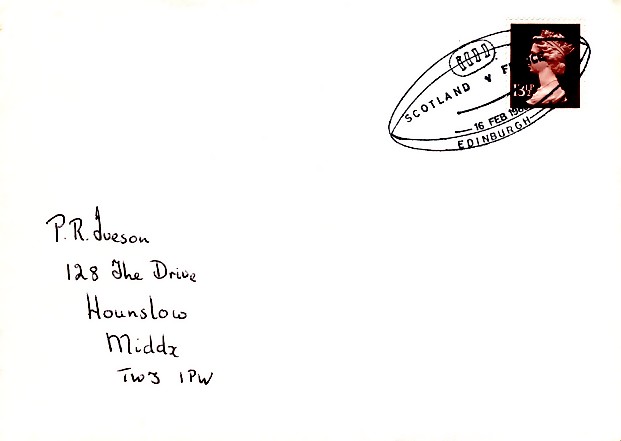 SCOTLAND v FRANCE
16 FEB 198
EDINBURGH
P.R. Iveson
128 The Drive
Hounslow
Middx
TW3 1PW